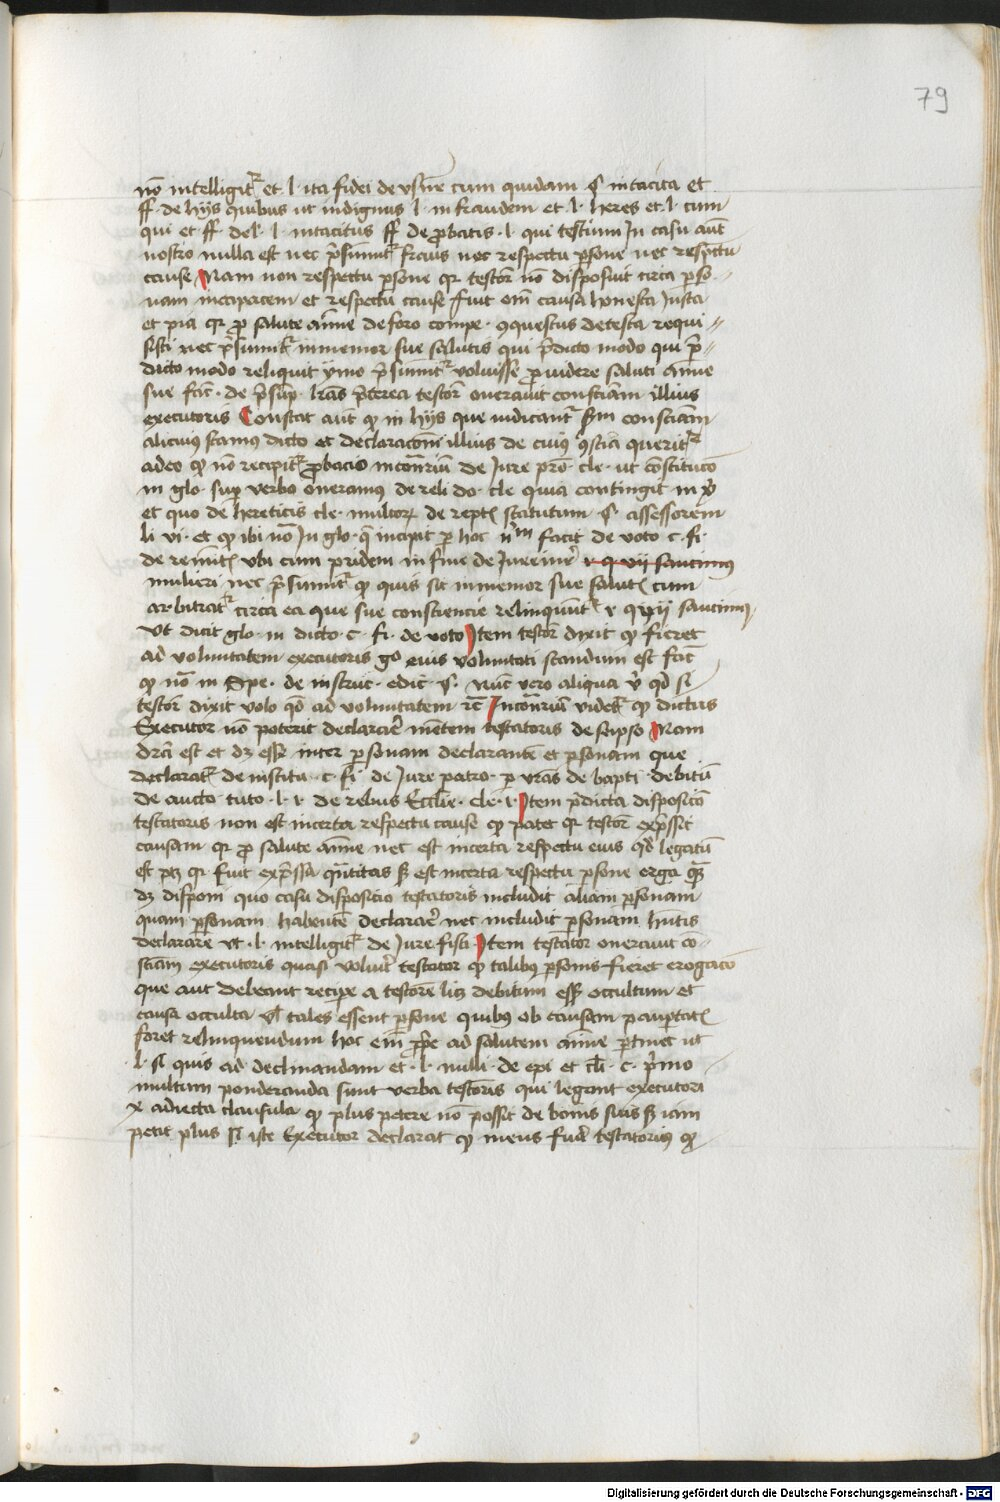 79
nō intelligit᷑ et l · ita fidei de vsur̄ cum quidam § in tacita et
ff · de hijs quibus ut indignis l · in fraudem et l · heres et l · cum
qui et ff del · l · in tacitus ff de ꝓbatis · l · qui testium In casu aūt
nostro nulla est nec p̄sumit᷑ fraus nec respectu ꝑsone nec respectu
cause Nam non respectu ꝑsone qꝛ testor̄ nō disposuit circa ꝑso
nam incapacem et respectu cause fuit em̄ causa honesta Iusta
et pia qꝛ ꝓ salute aīme de foro compe · ꝯquestus de testa requi
sisti nec p̄sumit᷑ inmemor sue salutis qui p̄dicto modo qui p̄
dicto modo reliquit ymo p̄sumit᷑ voluisse ꝓuidere saluti anime
sue fac̄ · de p̄sūp · lr̄as p̄terea testor̄ onerauit consciām illius
executoris Constat aūt ꝙ in hijs que iudicant᷑ scd̄m consciām
alicuius stamus dicto et declaracōni illius de cuius ꝯsciā querit᷑
adeo ꝙ nō recipit᷑ ꝓbacio in contrariū de Iure pro · cle · ut cōstitucō
in glo · suꝑ verbo oneramus de reli do · cle quia contingit in
et quo de hereticis cle · multorꝝ de rept̄ statutum § assessorem
li vi · et ꝙ ibi nō In glo · q̄ incipit ꝑ hoc facit de voto c · fi ·
de remit̄ vbi cum pridem in fine de Iureiur̄ r q vij sancimus
mulieri nec p̄sumit᷑ ꝙ quis sit inmemor sue salut̄ cum
arbitrat᷑ circa ea que sue consciencie relinquūt᷑ r q vij sancimus
Vt dicit glo · in dicto · c · fi · de voto Item testor̄ dixit ꝙ fieret
ad voluntatem executoris go eius voluntati standum est fac̄
ꝙ nō in Spe · de instruc · edic̄ § · nūc vero aliqua v̄ qd̄ si
testor̄ dixit volo qd̄ ad voluntatem rc̄ In contrariū videt᷑ ꝙ dictus
Executor nō poterit declarar̄ mētem testatoris de seipso Nam
dr̄a est et dꝫ esse inter ꝑsonam declarantē et ꝑsonam que
declarat᷑ de institu · c · fi · de Iure patro · ꝑ vr̄as de bapti debitū
de aucto · tuto · l · r · de rebus Ecclīe · cle · r · Item p̄dicta disposicō
testatoris non est incerta respectu cause ꝙ patet qꝛ testor̄ exp̄ssit
causam qꝛ ꝓ salute anīme nec est incerta respectu eius qd̄ legatū
est ptꝫ qꝛ fuit exp̄ssa qūtitas sꝫ est incerta respectu ꝑsone erga quā
dꝫ disponi quo casu disposicio testatoris includit aliam ꝑsonam
quam ꝑsonam habentē declarar̄ nec includit ꝑsonam hn̄tis
declarare vt · l · intelligit᷑ de Iure fisci Item testator onerauit cō
sciām executoris quasi voluīt testator ꝙ talibus ꝑsonis fieret erogacō
que aut debeant recipe a testore licꝫ debitum esset occultum et
causa occulta vl̄ tales essent ꝑsone quibus ob causam pauꝑtat̄
foret relinquendum hoc em̄ ꝓprie ad salutem anīme ꝑtinet ut
· l · si quis ad declinandam et · l · nulli · de epi et cl̄i · c · p̄imo
multum ponderanda sunt verba testoris qui legant executori
x adiecta clausula ꝙ plus petere nō possit de bonis suis sꝫ iam
petit plus si iste Executor declarat ꝙ mens fuit testatoris ꝙ
Digitalisierung gefördert durch die Deutsche Forschungsgemeinschaft - DFG